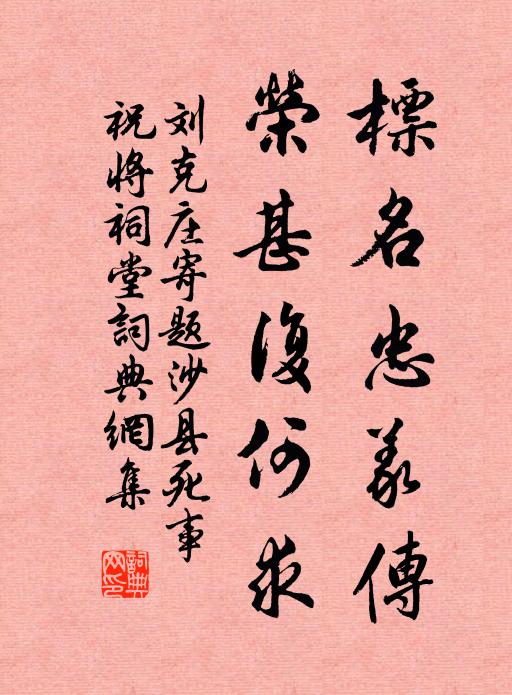 標名忠義傳
榮甚復何求
刘克庄寄题沙县死事
祝将祠堂詞典網集
詞典網印